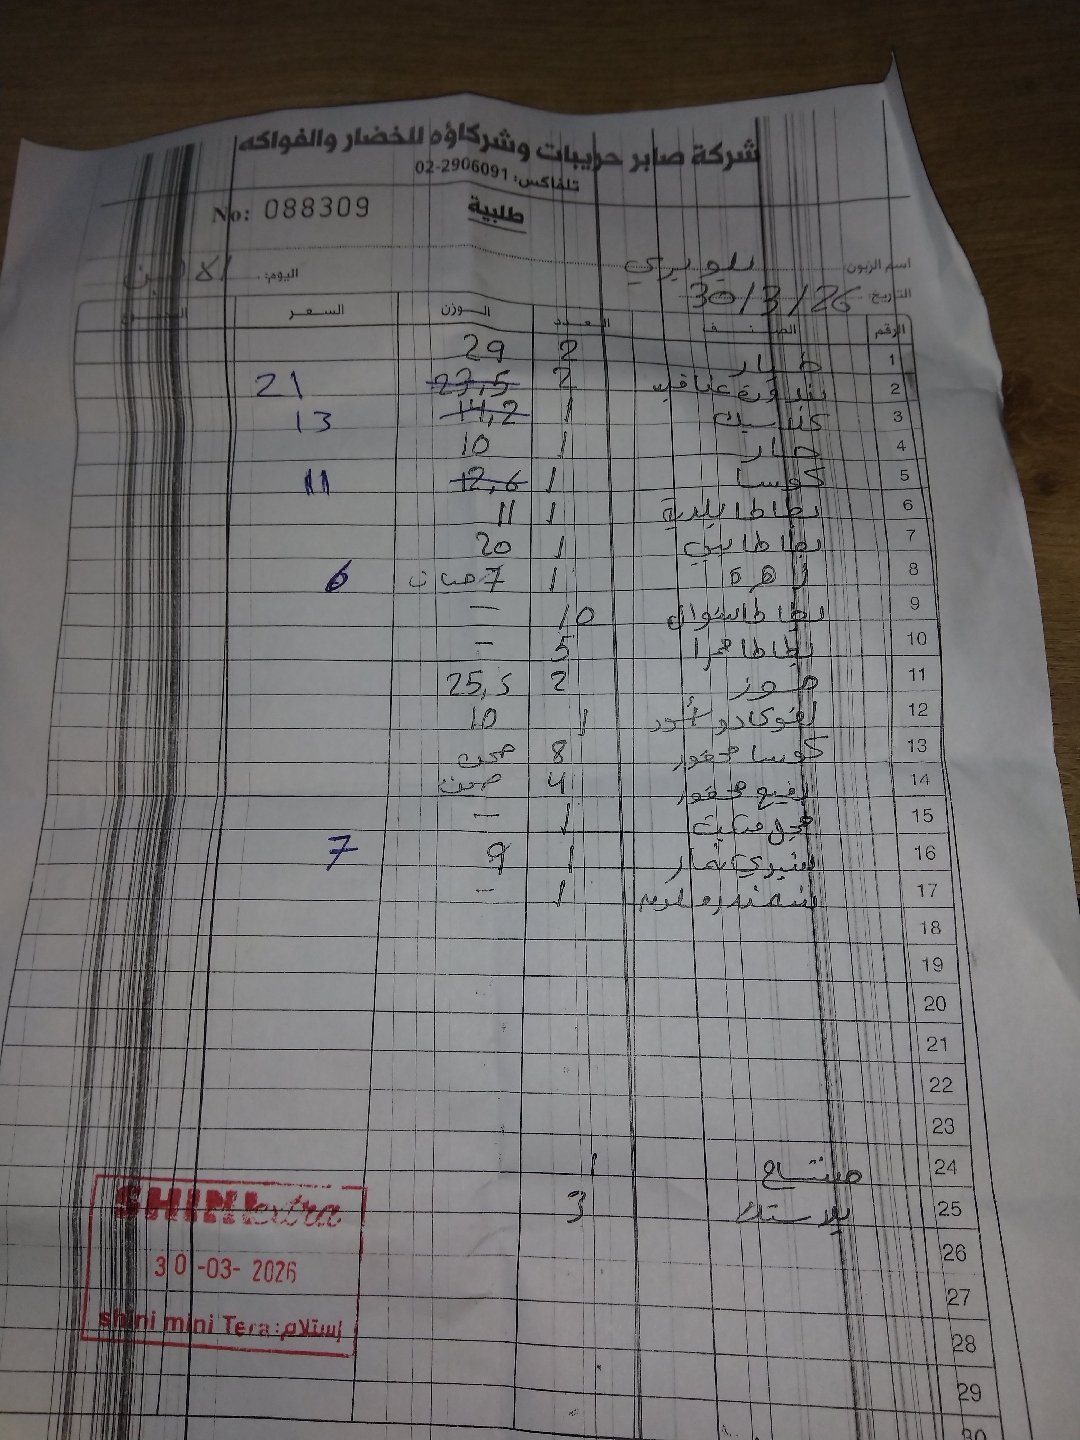 شركة صابر حريبات وشركاؤه للخضار والفواكه
تلفاكس: 02-2906091
No: 088309
طلبية
اسم الزبون: بلوبيري اليوم: الاثنين
التاريخ: 30/3/26
الرقم الصنف العدد الوزن السعر المجموع
1 خيار 2 29
2 بندورة عناقيد 2 23,5 21
3 كلاسيك 1 14,2 13
4 خيار 1 10
5 كوسا 1 12,6 11
6 بطاطا بلدية 1 11
7 بطاطا بيبي 1 20
8 زهرة 1 7 حبات 6
9 بطاطا 10 -
10 بطاطا حمرا 5 -
11 موز 2 25,5
12 افوكادو أسود 1 10
13 كوسا محفور 8 صحن
14 محفور 4 صحن
15 فجل 1 -
16 شيري 1 9 7
17 شمندر 1 -
18
19
20
21
22
23
24 مشتاح 1
25 بلاستك 3
26
27
28
29
30
SHINI extra
30-03-2026
shini mini Tera :إستلام